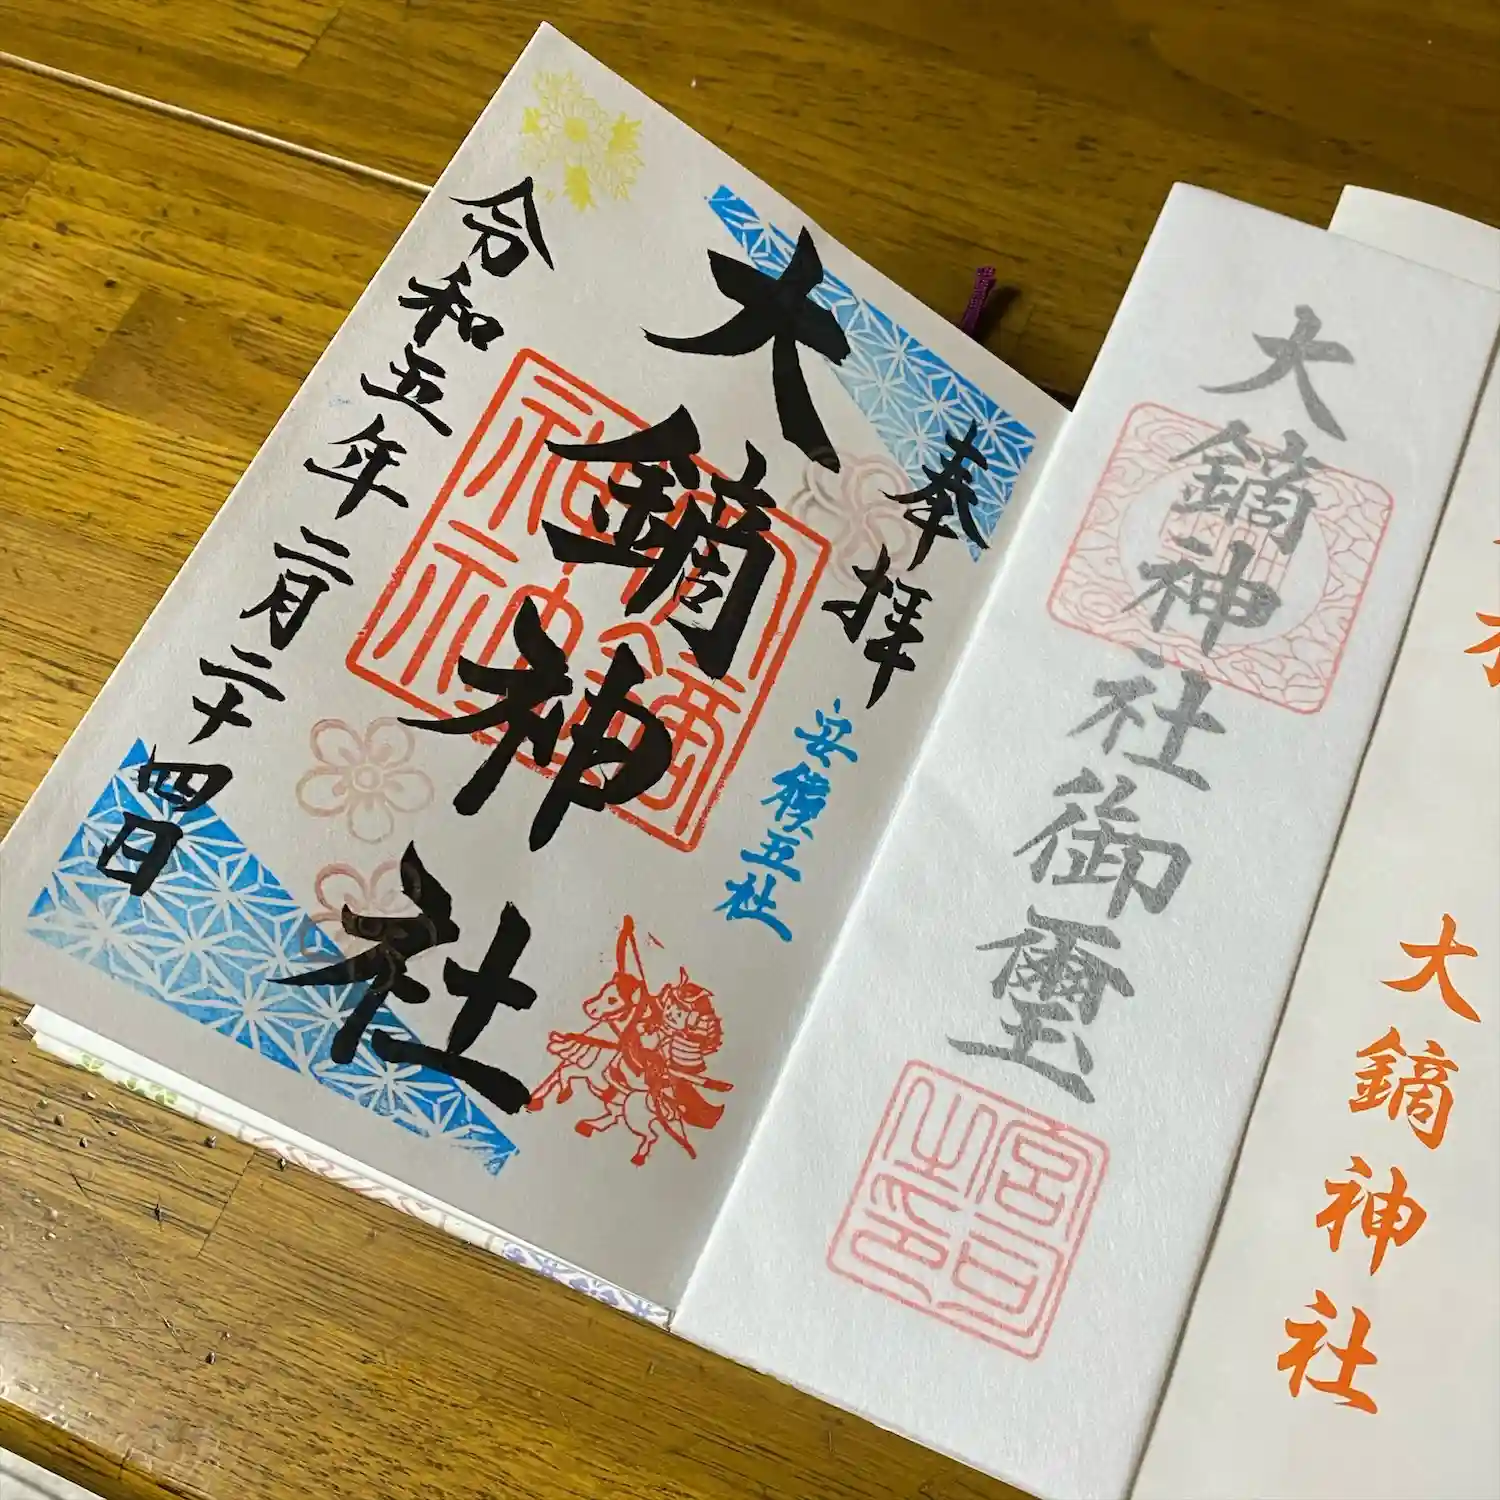 奉拝
安積五社
大鏑神社
令和五年二月二十四日
大鏑神社御璽
宮司之印
大鏑神社